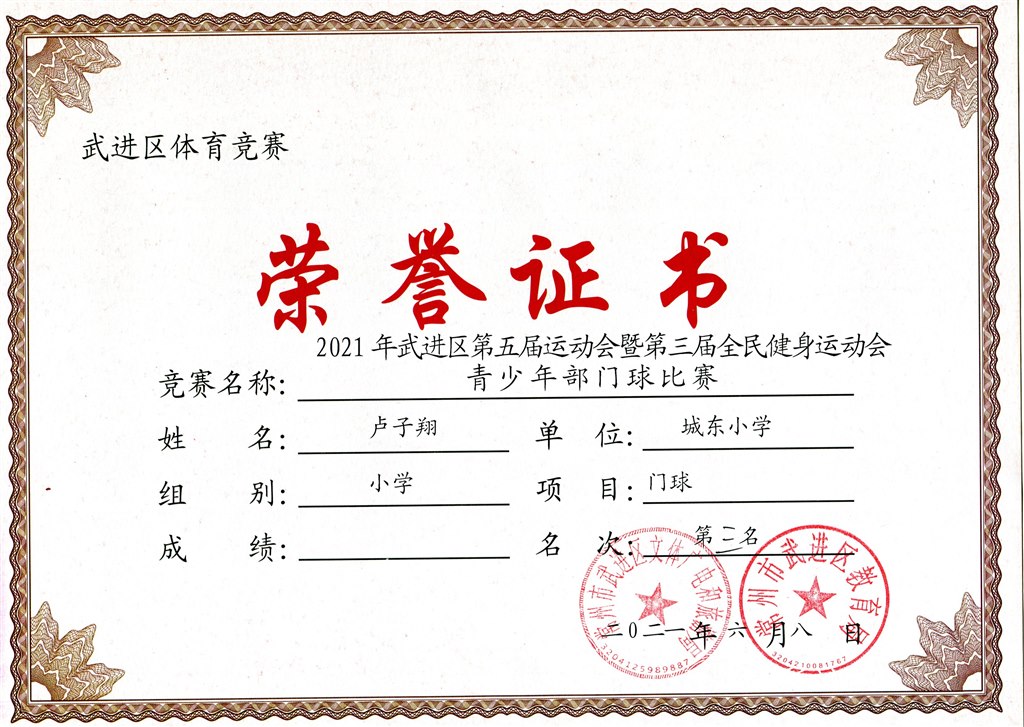 武进区体育竞赛
荣誉证书
2021年武进区第五届运动会暨第三届全民健身运动会
竞赛名称：青少年部门球比赛
姓 名：卢子翔 单 位：城东小学
组 别：小学 项 目：门球
成 绩： 名 次：第三名
常州市武进区文体广电和旅游局
3204125989887
常州市武进区教育局
3204210081767
二〇二一年六月八日